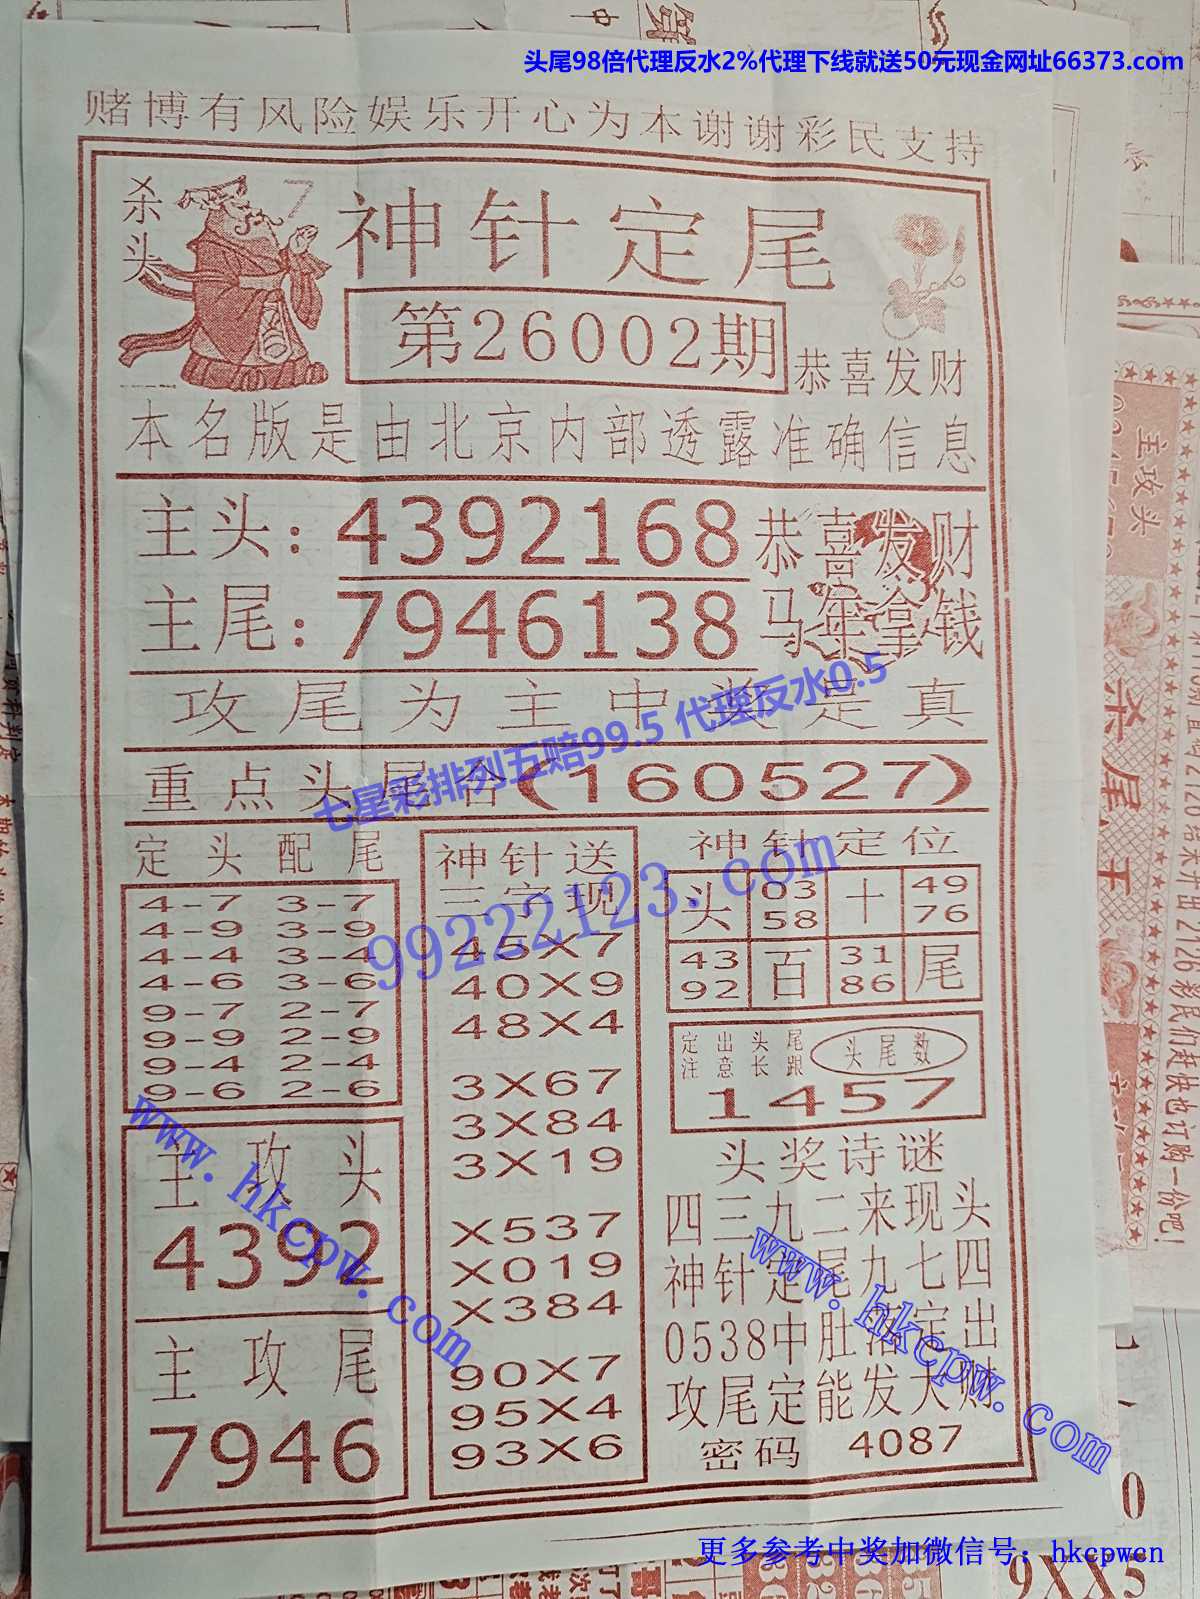 头尾98倍代理反水2%代理下线就送50元现金网址66373.com
赌博有风险娱乐开心为本谢谢彩民支持
杀头
7
神针定尾
第26002期
恭喜发财
本名版是由北京内部透露准确信息
主头：4392168
恭喜发财
主尾：7946138
马年拿钱
攻尾为主中奖是真
重点头尾合(160527)
七星彩排列五赔99.5 代理反水0.5
99222123.com
定头配尾
4-7 3-7
4-9 3-9
4-4 3-4
4-6 3-6
9-7 2-7
9-9 2-9
9-4 2-4
9-6 2-6
主攻头
4392
主攻尾
7946
神针送
三字现
45X7
40X9
48X4
3X67
3X84
3X19
X537
X019
X384
90X7
95X4
93X6
神针定位
头 03 十 49
58 76
43 百 31 尾
92 86
定出头尾
注意长跟
头尾数
1457
头奖诗谜
四三九二来现头
神针定尾九七四
0538中肚落定出
攻尾定能发大财
密码 4087
www.hkcpw.com
www.hkcpw.com
更多参考中奖加微信号：hkcpwcn
主攻头
杀尾
彩民们赶快也订购一份吧！
0
9XX5